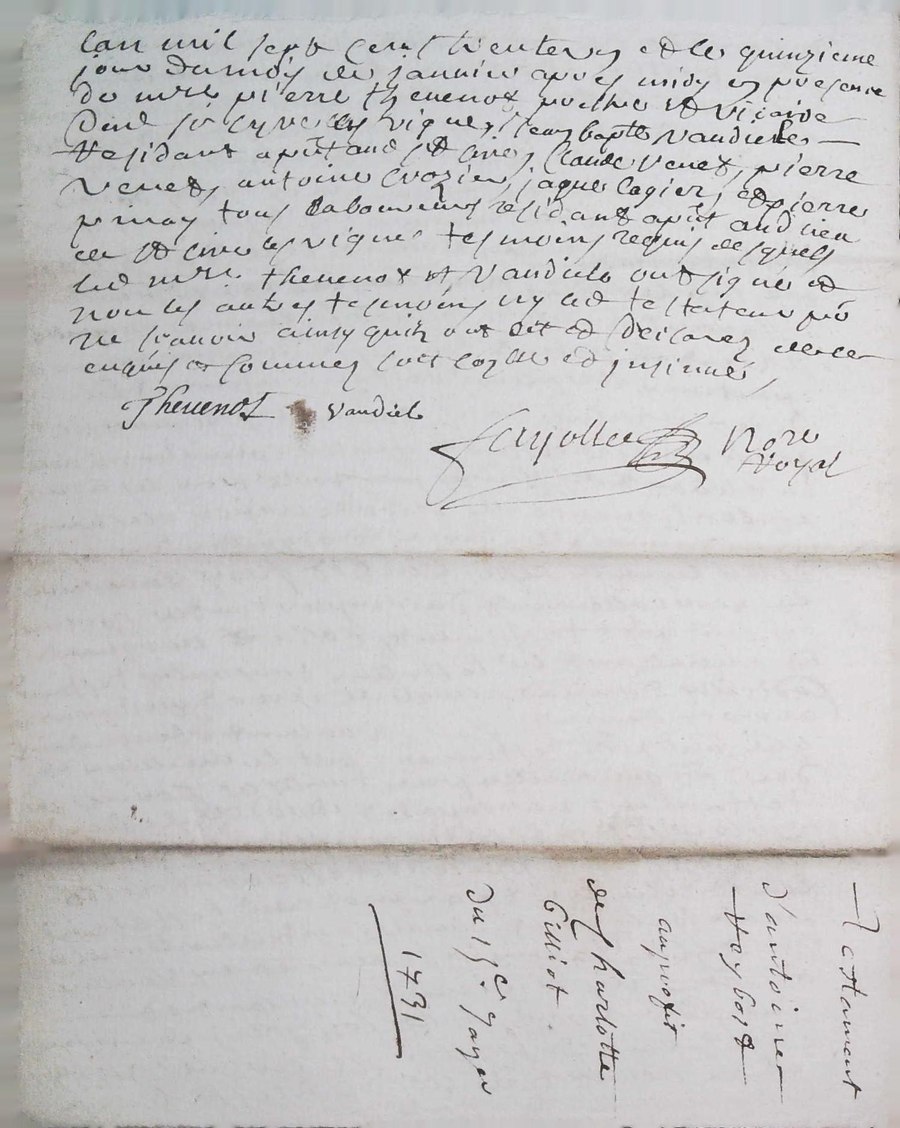 Lan mil sept cens trente un et le quinzieme
jour du mois de janvier apres midy en presence
de mre pierre thevenot prebtre et vicaire
Dud st cyr les vignes, jean bapte vaudiele
Residant audit st cire, Claude Venet, pierre
Venet, antoine crozier, jaque lagier, et pierre
prinay tous laboureurs residant aud lieu
de st cire les vignes tesmoins requis desquels
led mre thevenot et Vaudiele ont signé et
non les autres tesmoins ny led testateur pour
ne scavoir ainsy quils ont dit et declarez de ce
enquis et sommez soit collé et insinué
Thevenot vaudiele
Fayolle Nore
Royal
Testament
d'antoine
auprofit
de Charlotte
Gilliot.
du 15e. Janer
1731